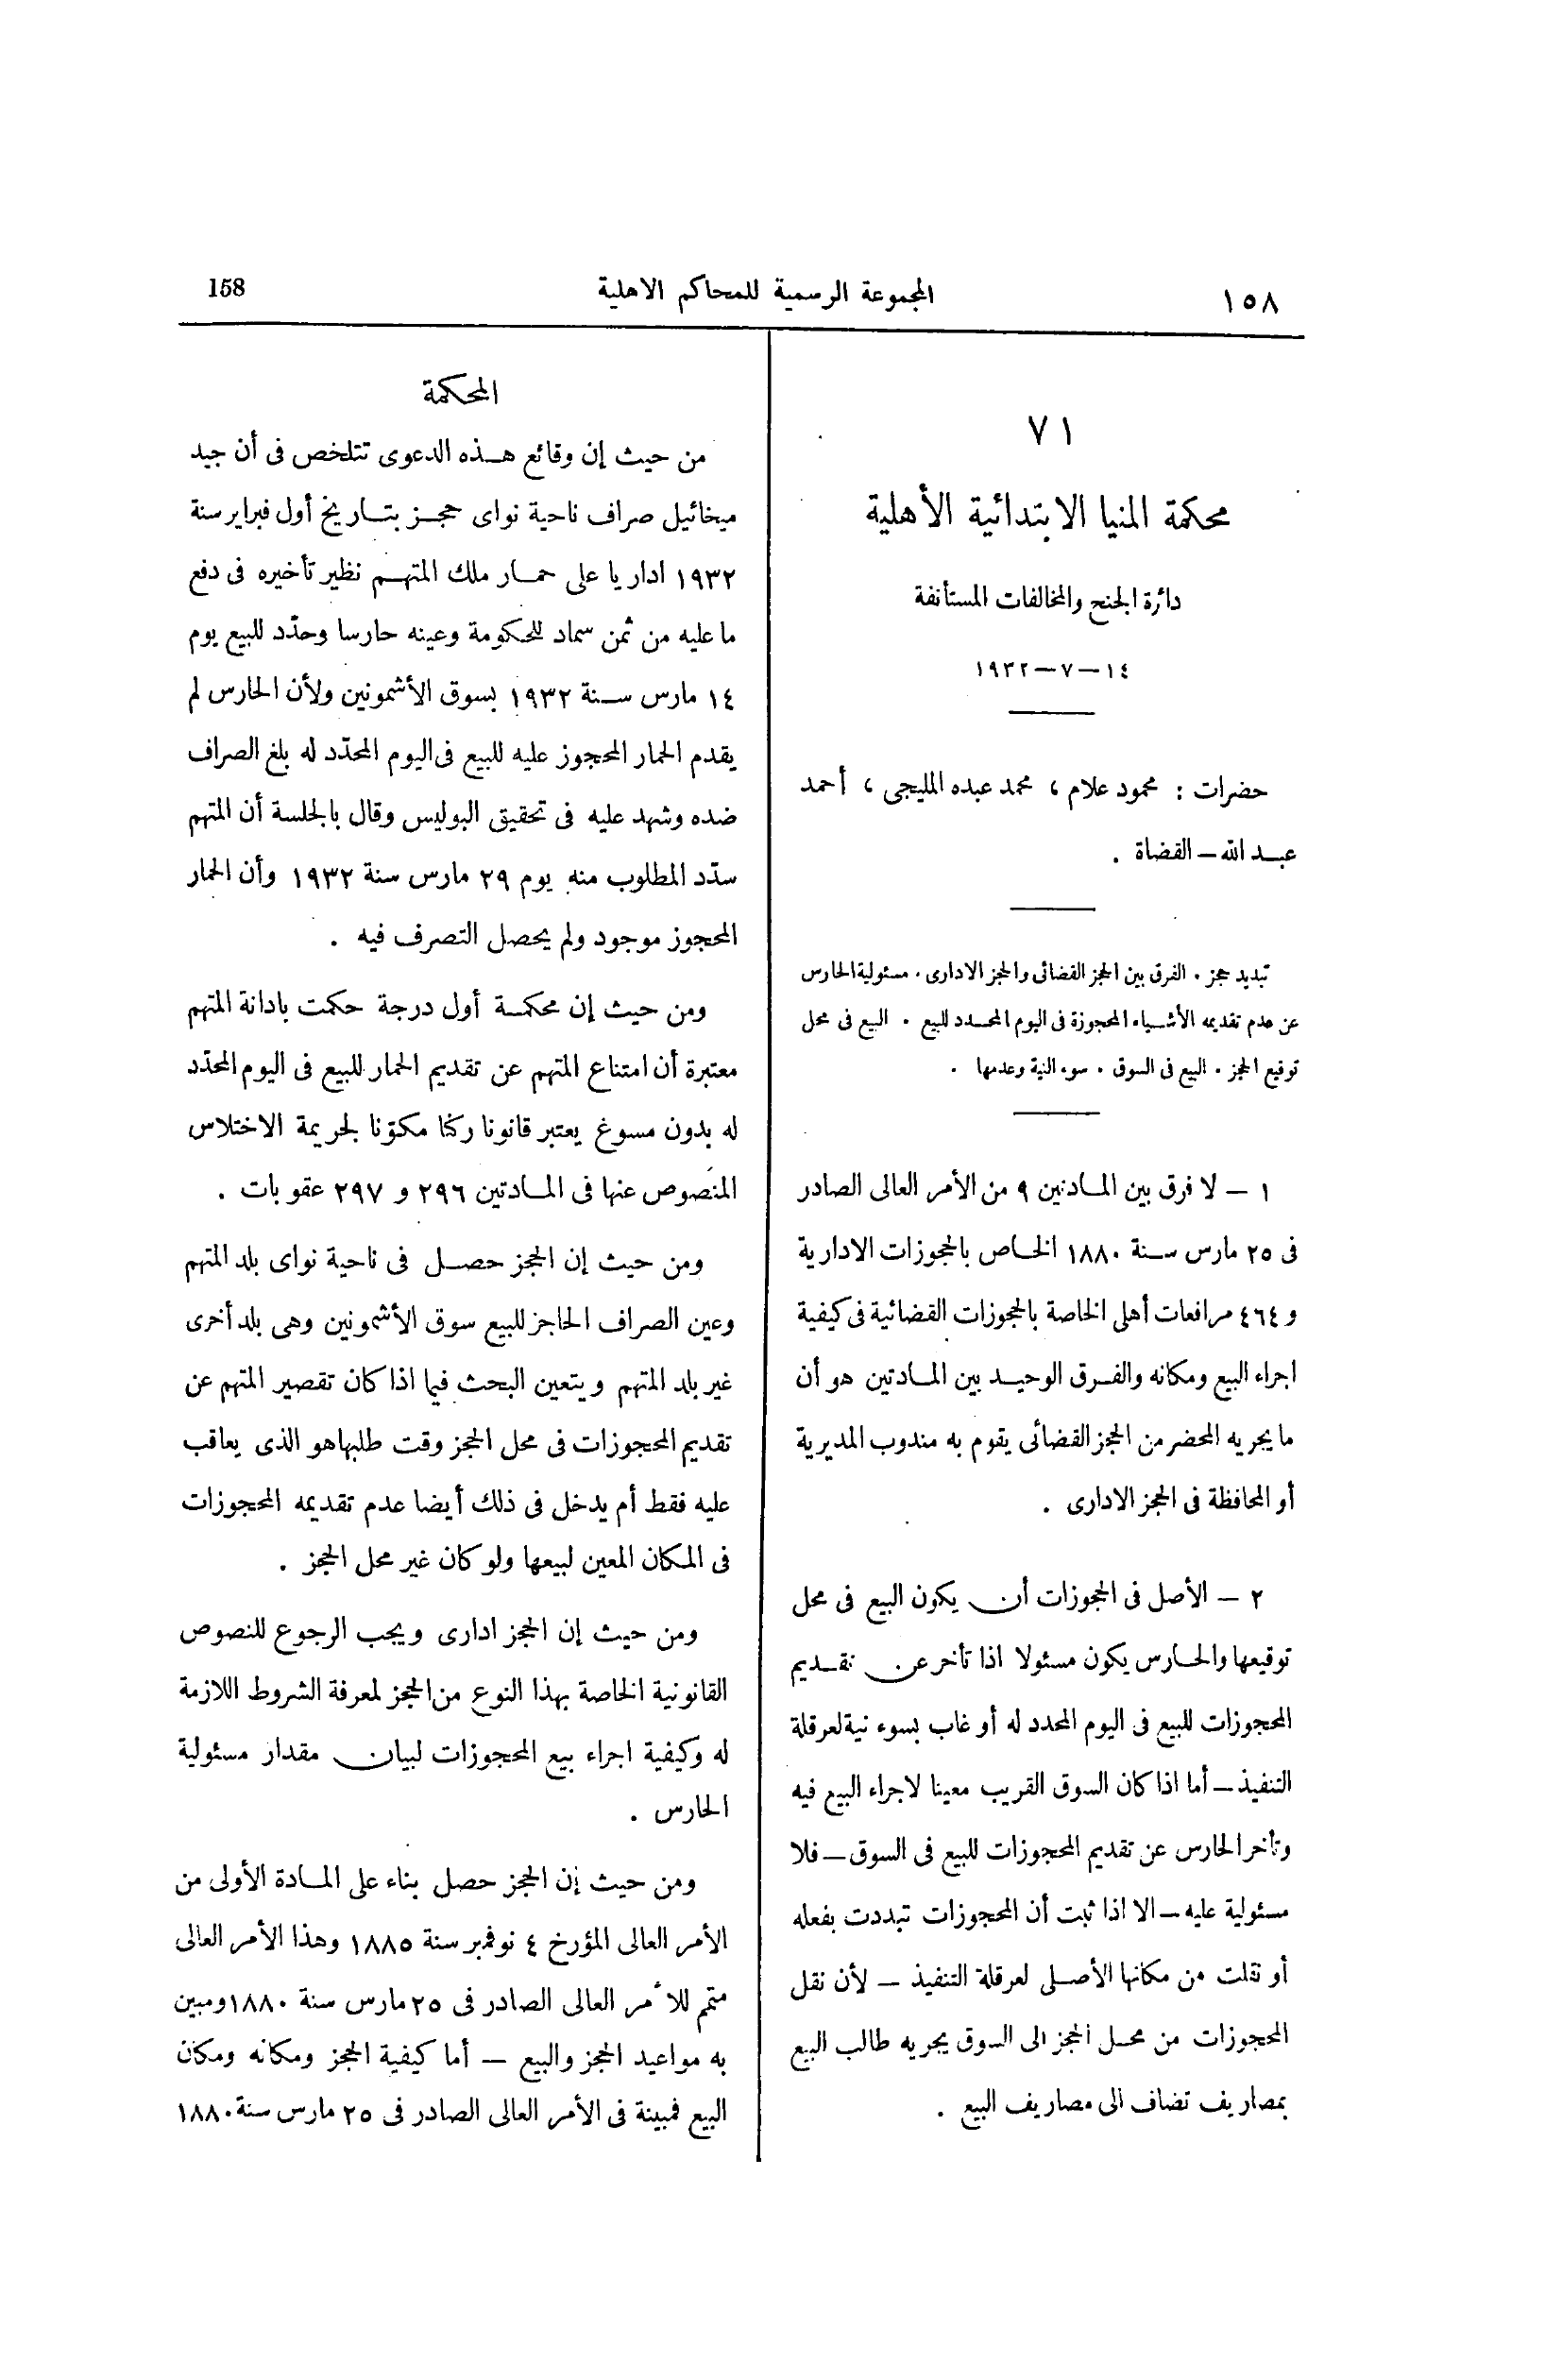 ١٥٨
المجموعة الرسمية للمحاكم الاهلية
158
٧١
محكمة المنيا الابتدائية الأهلية
دائرة الجنح والمخالفات المستأنفة
١٤ — ٧ — ١٩٣٢
حضرات : محمود علام ، محمد عبده المليجى ، أحمد
عبد الله — القضاة .
تبديد حجز . الفرق بين الحجز القضائى والحجز الادارى . مسئولية الحارس
عن عدم تقديمه الأشياء المحجوزة فى اليوم المحدد للبيع . البيع فى محل
توقيع الحجز . البيع فى السوق . سوء النية وعدمها .
١ — لا فرق بين المادتين ٩ من الأمر العالى الصادر
فى ٢٥ مارس سنة ١٨٨٠ الخاص بالحجوزات الادارية
و ٤٦٤ مرافعات أهلى الخاصة بالحجوزات القضائية فى كيفية
اجراء البيع ومكانه والفرق الوحيد بين المادتين هو أن
ما يجريه المحضر من الحجز القضائى يقوم به مندوب المديرية
أو المحافظة فى الحجز الادارى .
٢ — الأصل فى الحجوزات أن يكون البيع فى محل
توقيعها والحارس يكون مسئولا اذا تأخر عن تقديم
المحجوزات للبيع فى اليوم المحدد له أو غاب بسوء نية لعرقلة
التنفيذ — أما اذا كان السوق القريب معينا لاجراء البيع فيه
وتأخر الحارس عن تقديم المحجوزات للبيع فى السوق — فلا
مسئولية عليه — الا اذا ثبت أن المحجوزات تبددت بفعله
أو نقلت من مكانها الأصلى لعرقلة التنفيذ — لأن نقل
المحجوزات من محل الحجز الى السوق يجريه طالب البيع
بمصاريف تضاف الى مصاريف البيع .
المحكمة
من حيث إن وقائع هذه الدعوى تتلخص فى أن جيد
ميخائيل صراف ناحية نواى حجز بتاريخ أول فبراير سنة
١٩٣٢ اداريا على حمار ملك المتهم نظير تأخيره فى دفع
ما عليه من ثمن سماد للحكومة وعينه حارسا وحدّد للبيع يوم
١٤ مارس سنة ١٩٣٢ بسوق الأشمونين ولأن الحارس لم
يقدم الحمار المحجوز عليه للبيع فى اليوم المحدّد له بلغ الصراف
ضده وشهد عليه فى تحقيق البوليس وقال بالجلسة أن المتهم
سدّد المطلوب منه يوم ٢٩ مارس سنة ١٩٣٢ وأن الحمار
المحجوز موجود ولم يحصل التصرف فيه .
ومن حيث إن محكمة أول درجة حكمت بادانة المتهم
معتبرة أن امتناع المتهم عن تقديم الحمار للبيع فى اليوم المحدّد
له بدون مسوغ يعتبر قانونا ركنا مكوّنا لجريمة الاختلاس
المنصوص عنها فى المادتين ٢٩٦ و ٢٩٧ عقوبات .
ومن حيث إن الحجز حصل فى ناحية نواى بلد المتهم
وعين الصراف الحاجز للبيع سوق الأشمونين وهى بلد أخرى
غير بلد المتهم ويتعين البحث فيما اذا كان تقصير المتهم عن
تقديم المحجوزات فى محل الحجز وقت طلبها هو الذى يعاقب
عليه فقط أم يدخل فى ذلك أيضا عدم تقديمه المحجوزات
فى المكان المعين لبيعها ولو كان غير محل الحجز .
ومن حيث إن الحجز ادارى ويجب الرجوع للنصوص
القانونية الخاصة بهذا النوع من الحجز لمعرفة الشروط اللازمة
له وكيفية اجراء بيع المحجوزات لبيان مقدار مسئولية
الحارس .
ومن حيث إن الحجز حصل بناء على المادة الأولى من
الأمر العالى المؤرخ ٤ نوفمبر سنة ١٨٨٥ وهذا الأمر العالى
متمم للأمر العالى الصادر فى ٢٥ مارس سنة ١٨٨٠ ومبين
به مواعيد الحجز والبيع — أما كيفية الحجز ومكانه ومكان
البيع فمبينة فى الأمر العالى الصادر فى ٢٥ مارس سنة ١٨٨٠